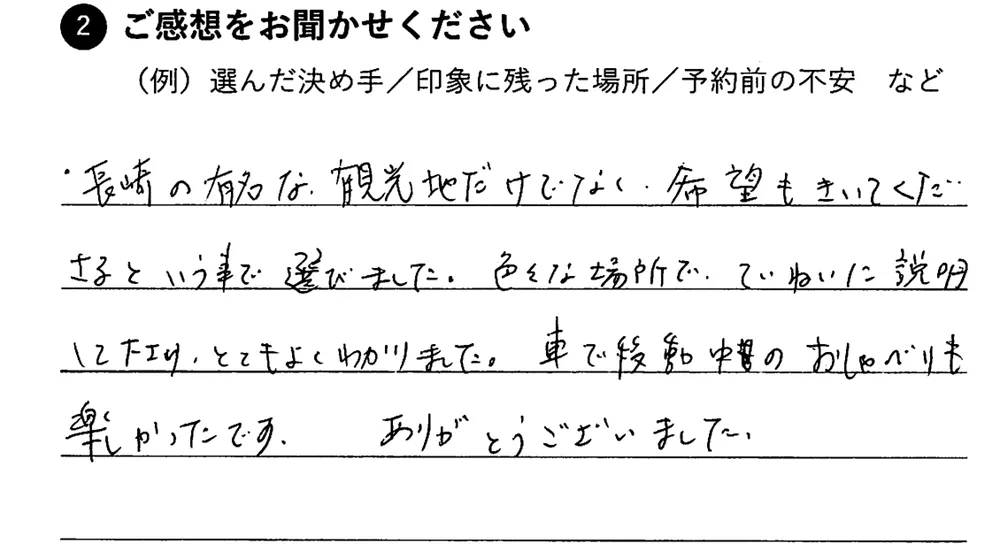 2 ご感想をお聞かせください
（例）選んだ決め手／印象に残った場所／予約前の不安 など
・長崎の有名な、観光地だけでなく、希望もきいてくだ
さるという事で選びました。色々な場所で、ていねいに説明
して下さり、とてもよくわかりました。車で移動中のおしゃべりも
楽しかったです。 ありがとうございました。